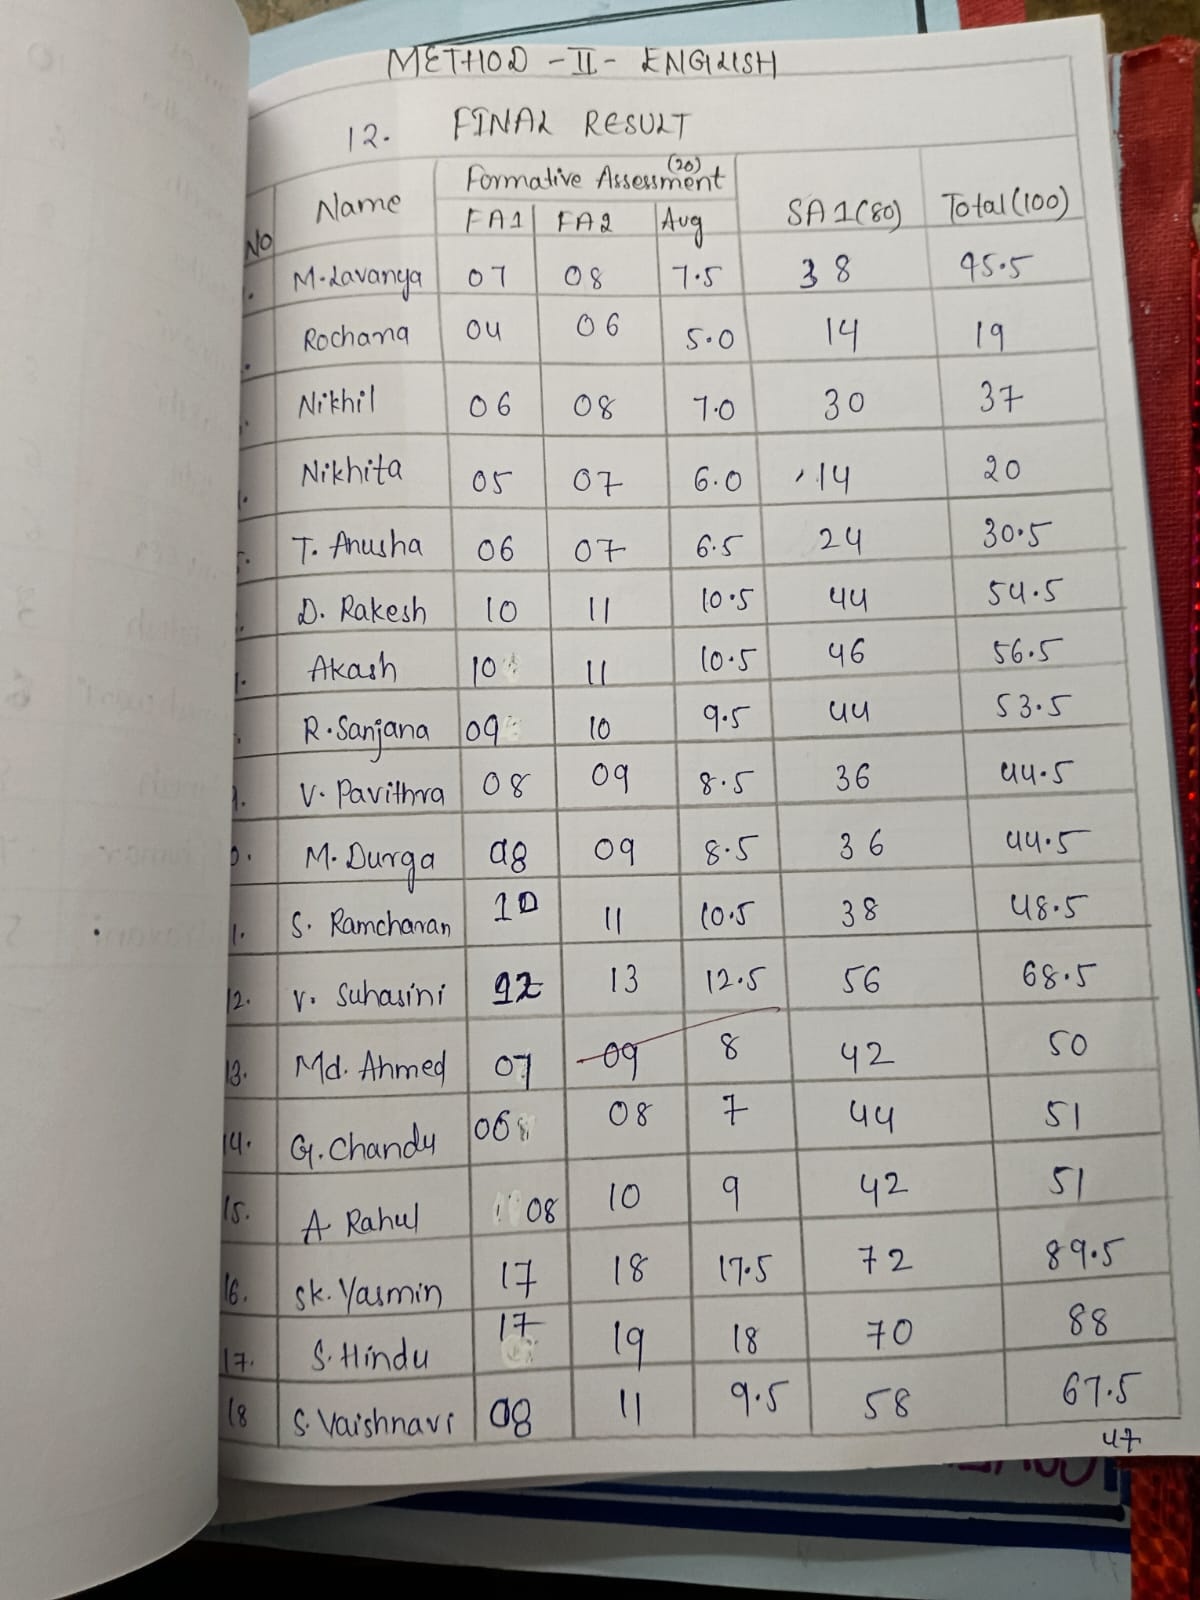 METHOD - II - ENGLISH
12. FINAL RESULT
No Name Formative Assessment (20) SA1(80) Total(100)
FA1 FA2 Avg
M. Lavanya 07 08 7.5 38 45.5
Rochana 04 06 5.0 14 19
Nikhil 06 08 7.0 30 37
Nikhita 05 07 6.0 14 20
5. T. Anusha 06 07 6.5 24 30.5
D. Rakesh 10 11 10.5 44 54.5
Akash 10 11 10.5 46 56.5
R. Sanjana 09 10 9.5 44 53.5
9. V. Pavithra 08 09 8.5 36 44.5
0. M. Durga 08 09 8.5 36 44.5
1. S. Ramcharan 10 11 10.5 38 48.5
12. V. Suhasini 12 13 12.5 56 68.5
13. Md. Ahmed 07 09 8 42 50
14. G. Chandu 06 08 7 44 51
15. A Rahul 08 10 9 42 51
16. Sk. Yasmin 17 18 17.5 72 89.5
17. S. Hindu 17 19 18 70 88
18 S. Vaishnavi 08 11 9.5 58 67.5
47